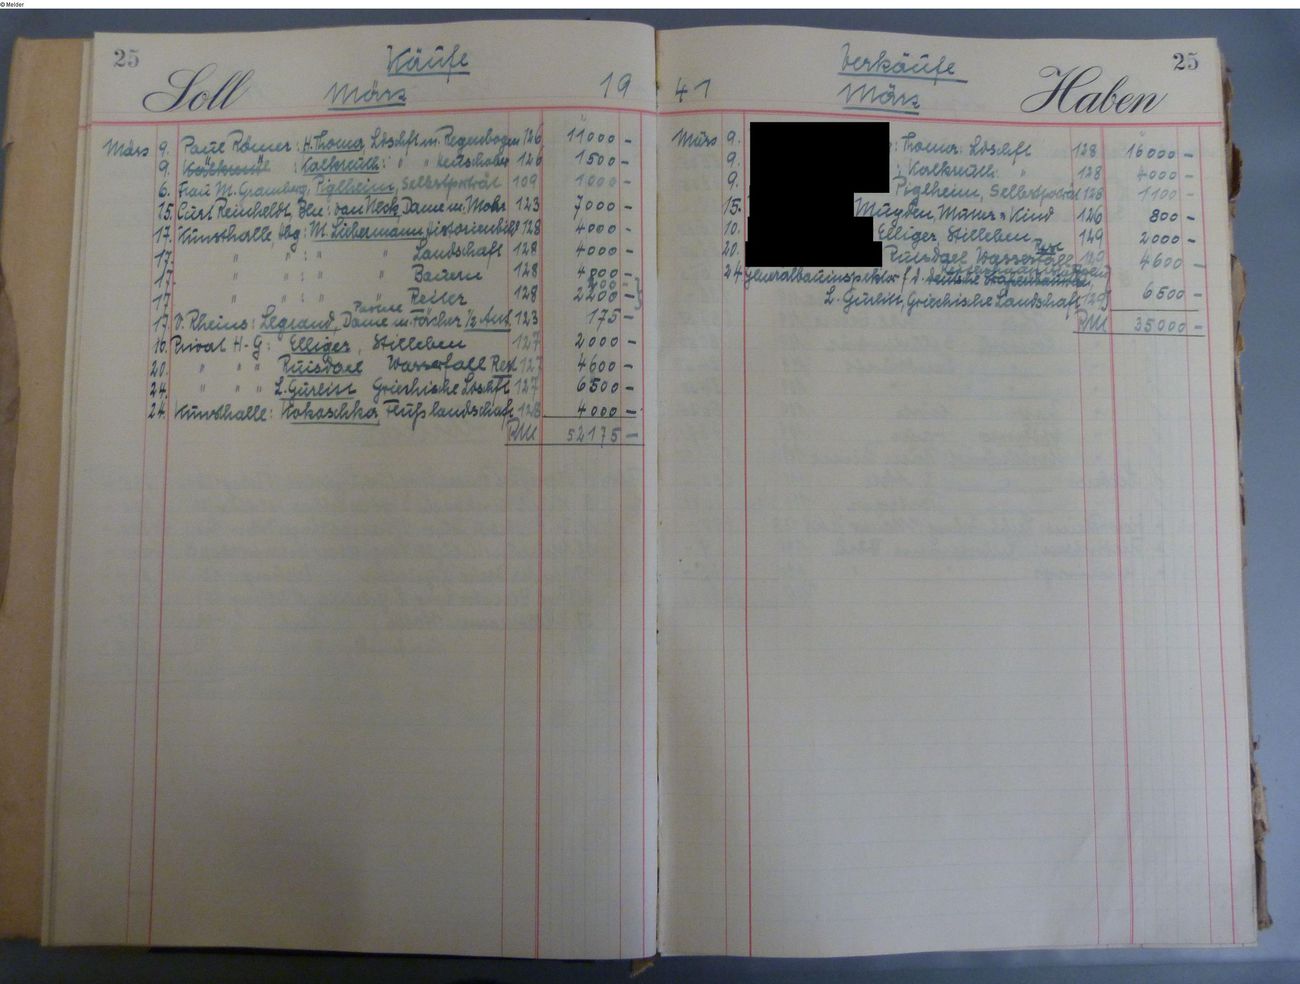 © Melder
25 Käufe
Soll März 19
März 9. Paul Römer: H. Thoma, Ldschft m. Regenbogen 126 11000 –
9. : Kalkreuth: " " 126 1500 –
6. Frau M. Gramberg, Piglhein, Selbstporträt 109 1000 –
15. Curt Reinheldt, Bln: van Neck, Dame m. Mohr 123 7000 –
17. Kunsthalle, Hbg: M. Liebermann, Historienbild 128 4000 –
17. " " : " " Landschaft 128 4000 –
17. " " : " " Bauern 128
17 " " : " " Reiter 128 2200 –
17. v. Rheins: Legrand, Dame m. Fächer 1/2 Ant. 123 175 –
10. Privat H-G: Elliger, Stilleben 127 2000 –
20. " " " Ruisdael Wasserfall Rest 127 4600 –
24. " " " L. Gurlitt Griechische Ldschft 127 6500 –
24. Kunsthalle: Kokoschka, Flußlandschaft 128 4000 –
RM 52175 –
Verkäufe 25
41 März Haben
März 9. : Thoma: Ldschft 128 16000 –
9. " Kalkreuth: " 128 4000 –
9. Piglhein, Selbstporträt 126 1100 –
15. Muyden, Mutter u. Kind 126 800 –
10. Elliger, Stilleben 129 2000 –
20. Ruisdael Wasserfall 129 4600 –
24 Generalbauinspektor f. d.
L. Gurlitt, Griechische Landschaft 129 6500 –
RM 35000 –